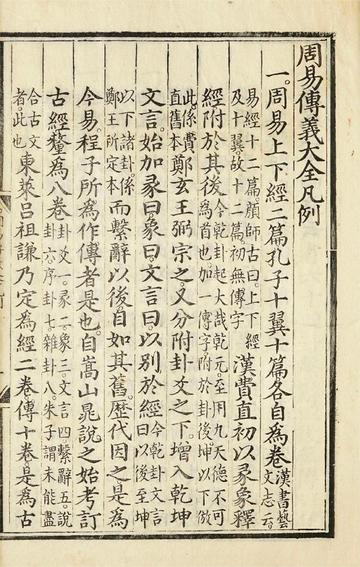 周易傳義大全凡例
一。周易上下經二篇孔子十翼十篇各自爲卷漢書藝文志云。
易經十二篇。顔師古曰。上下經及十翼故十二篇初無傳字漢費直初以彖象釋
經附於其後今乾卦起大哉乾元。至用九天德不可爲首也加一傳字附於卦後。坤以下倣
此係費直舊本鄭玄王弼宗之。又分附卦爻之下。增入乾坤
文言。始加彖曰。象曰。文言曰。以別於經今乾卦文言曰以後至坤
以下諸卦係鄭王所定本而繫辭以後自如其舊。歷代因之。是爲
今易。程子所爲作傳者是也。自嵩山晁說之始考訂
古經釐爲八卷卦爻一。彖二。象三。文言四。繫辭五。說卦六。序卦七。雜卦八。朱子謂未能盡
合古文者。此也東萊呂祖謙乃定爲經二卷傳十卷是爲古